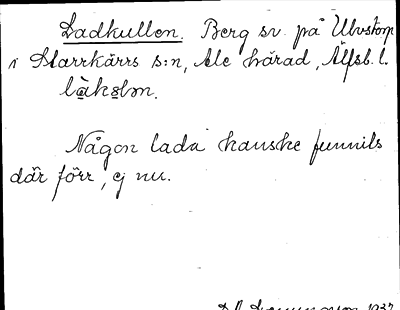 Ladkullen. Berg sv. på Ulvstorp
i Starrkärrs s:n, Ale härad, Älfsb. l.
Någon lada kanske funnits
där förr, ej nu.
1937